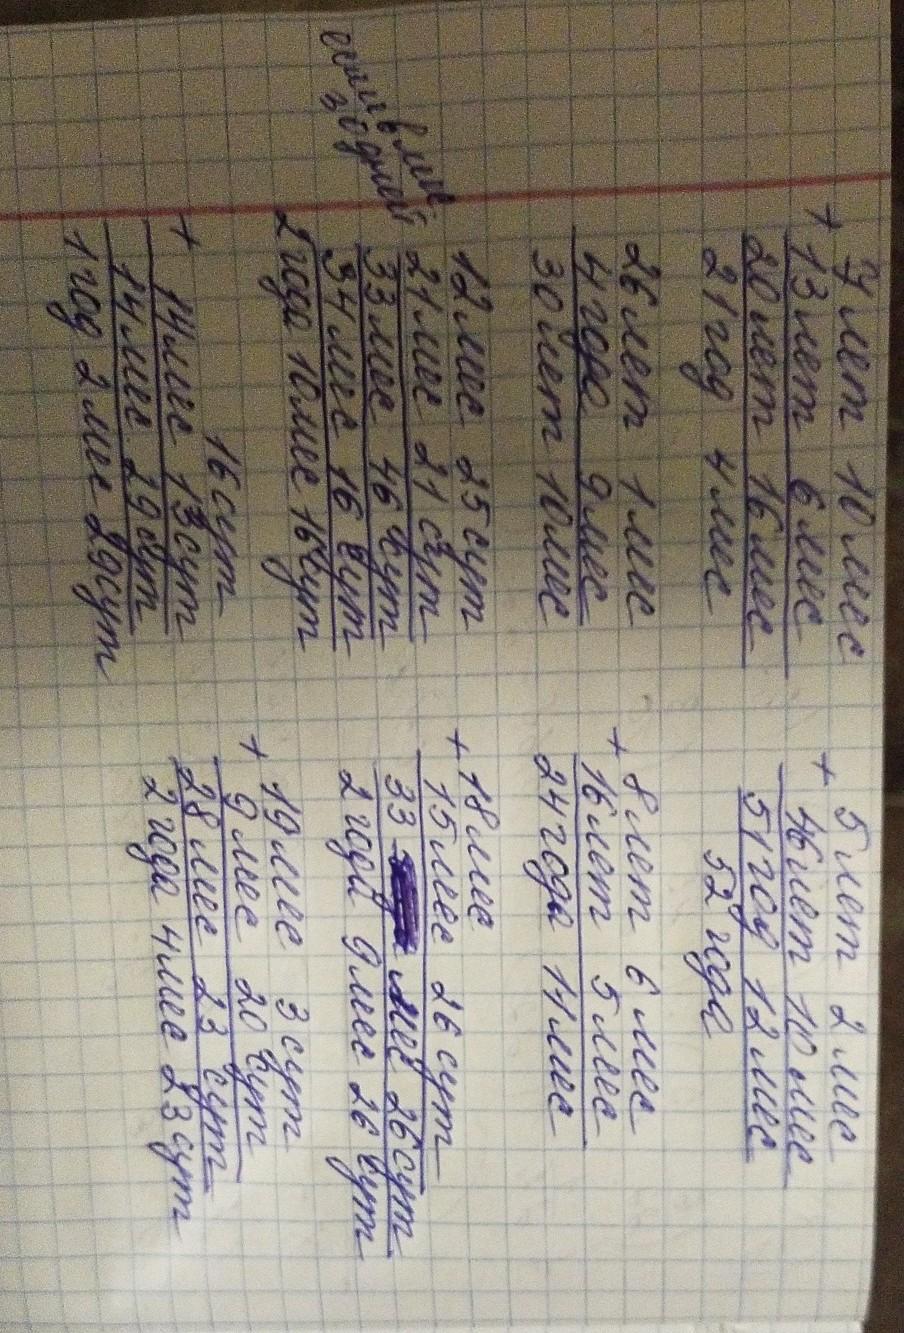 + 7 лет 10 мес
13 лет 6 мес
20 лет 16 мес
21 год 4 мес
26 лет 1 мес
4 года 9 мес
30 лет 10 мес
если в мес
30 дней
12 мес 25 сут
21 мес 21 сут
33 мес 46 сут
34 мес 16 сут
2 года 10 мес 16 сут
16 сут
+ 14 мес 13 сут
14 мес 29 сут
1 год 2 мес 29 сут
+ 5 лет 2 мес
46 лет 10 мес
51 год 12 мес
52 года
+ 8 лет 6 мес
16 лет 5 мес
24 года 11 мес
+ 18 мес
15 мес 26 сут
33 мес 26 сут
2 года 9 мес 26 сут
+ 19 мес 3 сут
9 мес 20 сут
28 мес 23 сут
2 года 4 мес 23 сут